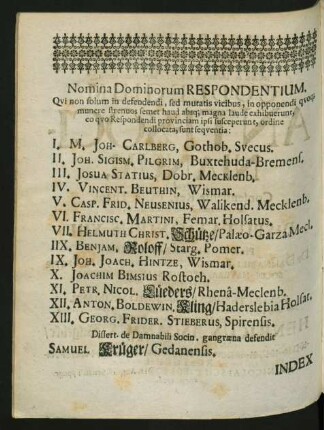 Nomina Dominorum RESPONDENTIUM.
Qvi non solum in defendendi, sed mutatis vicibus, in opponendi qvoq;
munere strenuos semet haud absq; magna laude exhibuerunt,
eo qvo Respondendi provinciam ipsi susceperunt, ordine
collocata, sunt seqventia:
I. M, Joh- Carlberg, Gothob, Svecus.
II. Joh. Sigism, Pilgrim, Buxtehuda-Bremens.
III. Josua Statius, Dobr, Mecklenb.
IV. Vincent. Beuthin, Wismar.
V. Casp. Frid, Neusenius, Walikend. Mecklenb.
VI. Francisc. Martini, Femar, Holsatus.
VII. Helmuth Christ, Schütze/ Palæo-Garza Mecl.
IIX. Benjam, Roloff/ Starg, Pomer.
IX. Joh. Joach. Hintze, Wismar.
X. Joachim Bimsius Rostoch.
XI. Petr, Nicol. Lüeders/ Rhenâ-Meclenb.
XII. Anton, Boldewin, Kling/ Haderslebia Holsat.
XIII. Georg. Frider. Stieberus, Spirensis.
Dissert. de Damnabili Socin. gangræna defendit
Samuel Krüger/ Gedanensis.
INDEX